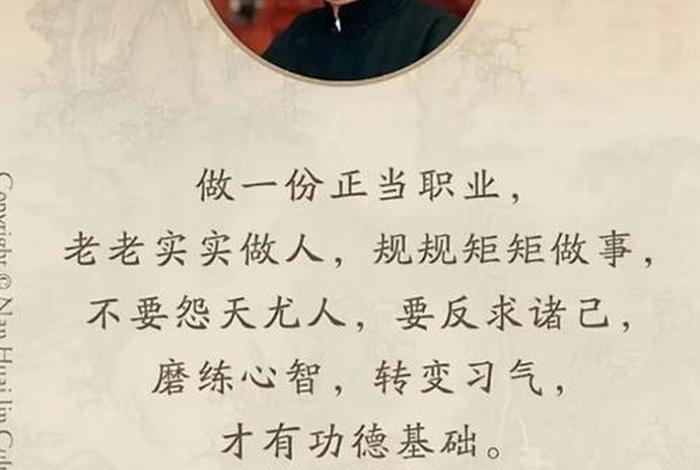 做一份正当职业，
老老实实做人，规规矩矩做事，
不要怨天尤人，要反求诸己，
磨练心智，转变习气，
才有功德基础。
Copyright © Nan Huai Jin Cul